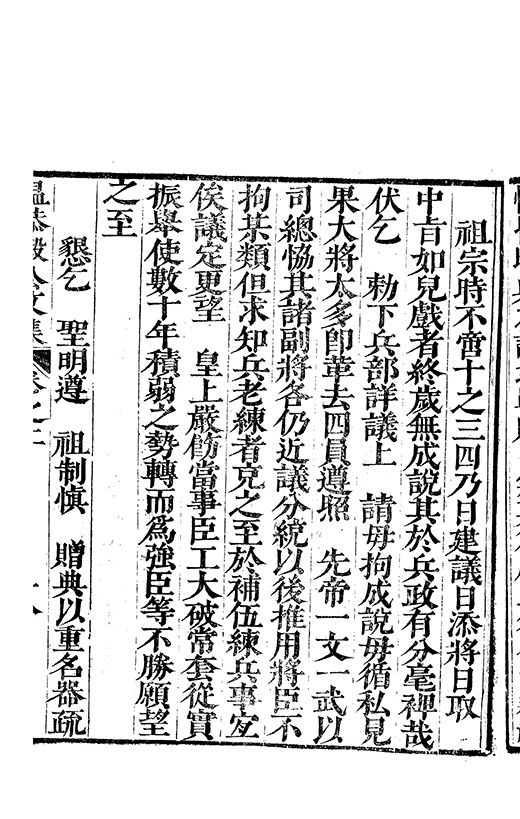 祖宗時不啻十之三四乃日建議日添將日取
中旨如兒戲者終歲無成說其於兵政有分毫裨哉
伏乞 勅下兵部詳議上 請毋拘成說毋循私見
果大將太多即革去四員遵照 先帝一文一武以
司總協其諸副將各仍近議分統以後推用將臣不
拘某類但求知兵老練者克之至於補伍練兵事宜
俟議定更望 皇上嚴飭當事臣工大破常套從實
振舉使數十年積弱之勢轉而爲強臣等不勝願望
之至
懇乞 聖明遵 祖制慎 贈典以重名器疏
溫恭毅公文集 卷之二 十八